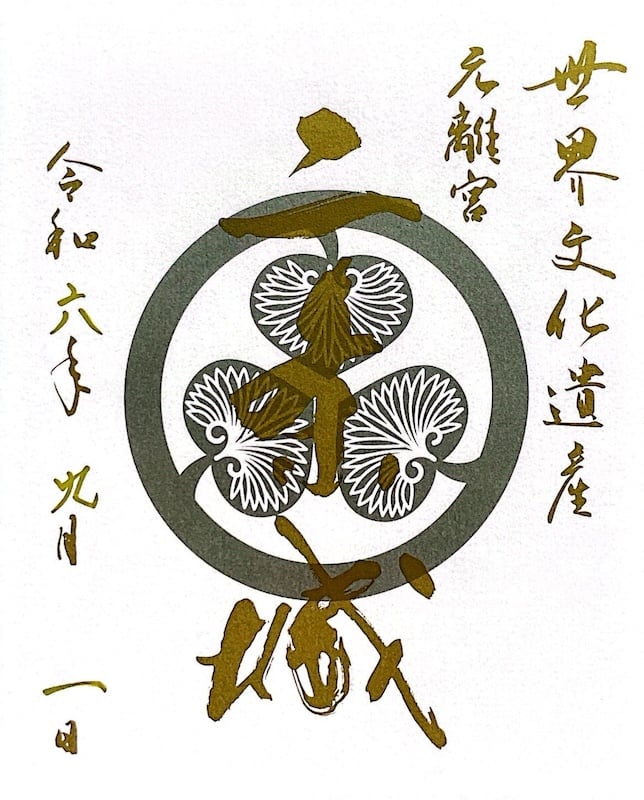 世界文化遺産
元離宮
二条城
令和六年 九月 一日